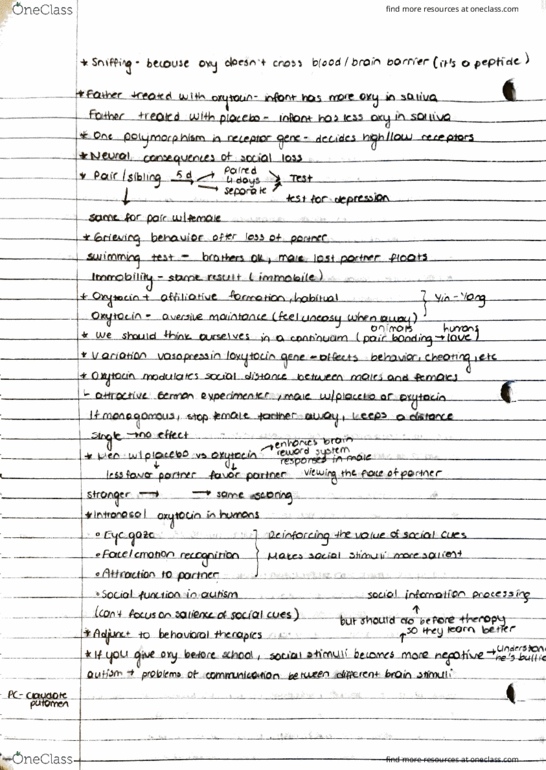 OneClass
find more resources at oneclass.com
* Sniffing - because oxy doesn't cross blood/brain barrier (it's a peptide)
* Father treated with oxytocin - infant has more oxy in saliva
Father treated with placebo - infant has less oxy in saliva
* One polymorphism in receptor gene - decides high/low receptors
* Neural consequences of social loss
* Pair/sibling 5d → paired 4 days → Test
→ separate
test for depression
same for pair w/female
* Grieving behavior after loss of partner
swimming test - brothers ok, male lost partner floats
Immobility - same result (immobile)
* Oxytocin + affiliative formation, habitual } Yin-Yang
Oxytocin - aversive maintance (feel uneasy when away)
* we should think ourselves in a continuum (pair bonding → love)
animals humans
* Variation vasopressin/oxytocin gene - effects behavior, cheating, etc
* Oxytocin modulates social distance between males and females
↳ attractive German experimenter, male w/placebo or oxytocin
If monogamous, stop female farther away, keeps a distance
single → no effect
* Men w/placebo vs oxytocin → enhances brain reward system responses in male
less favor partner favor partner viewing the face of partner
stranger → → same scoring
* Intranasal oxytocin in humans
• Eye gaze } Reinforcing the value of social cues
• Face/emotion recognition } Makes social stimuli more salient
• Attraction to partner
• Social function in autism social information processing
(can't focus on salience of social cues) ↑
but should do before therapy
* Adjunct to behavioral therapies ↑ so they learn better
* If you give oxy before school, social stimuli becomes more negative → understand he's
autism → problems of communication between different brain stimuli
PC - caudate putamen
OneClass
find more resources at oneclass.com